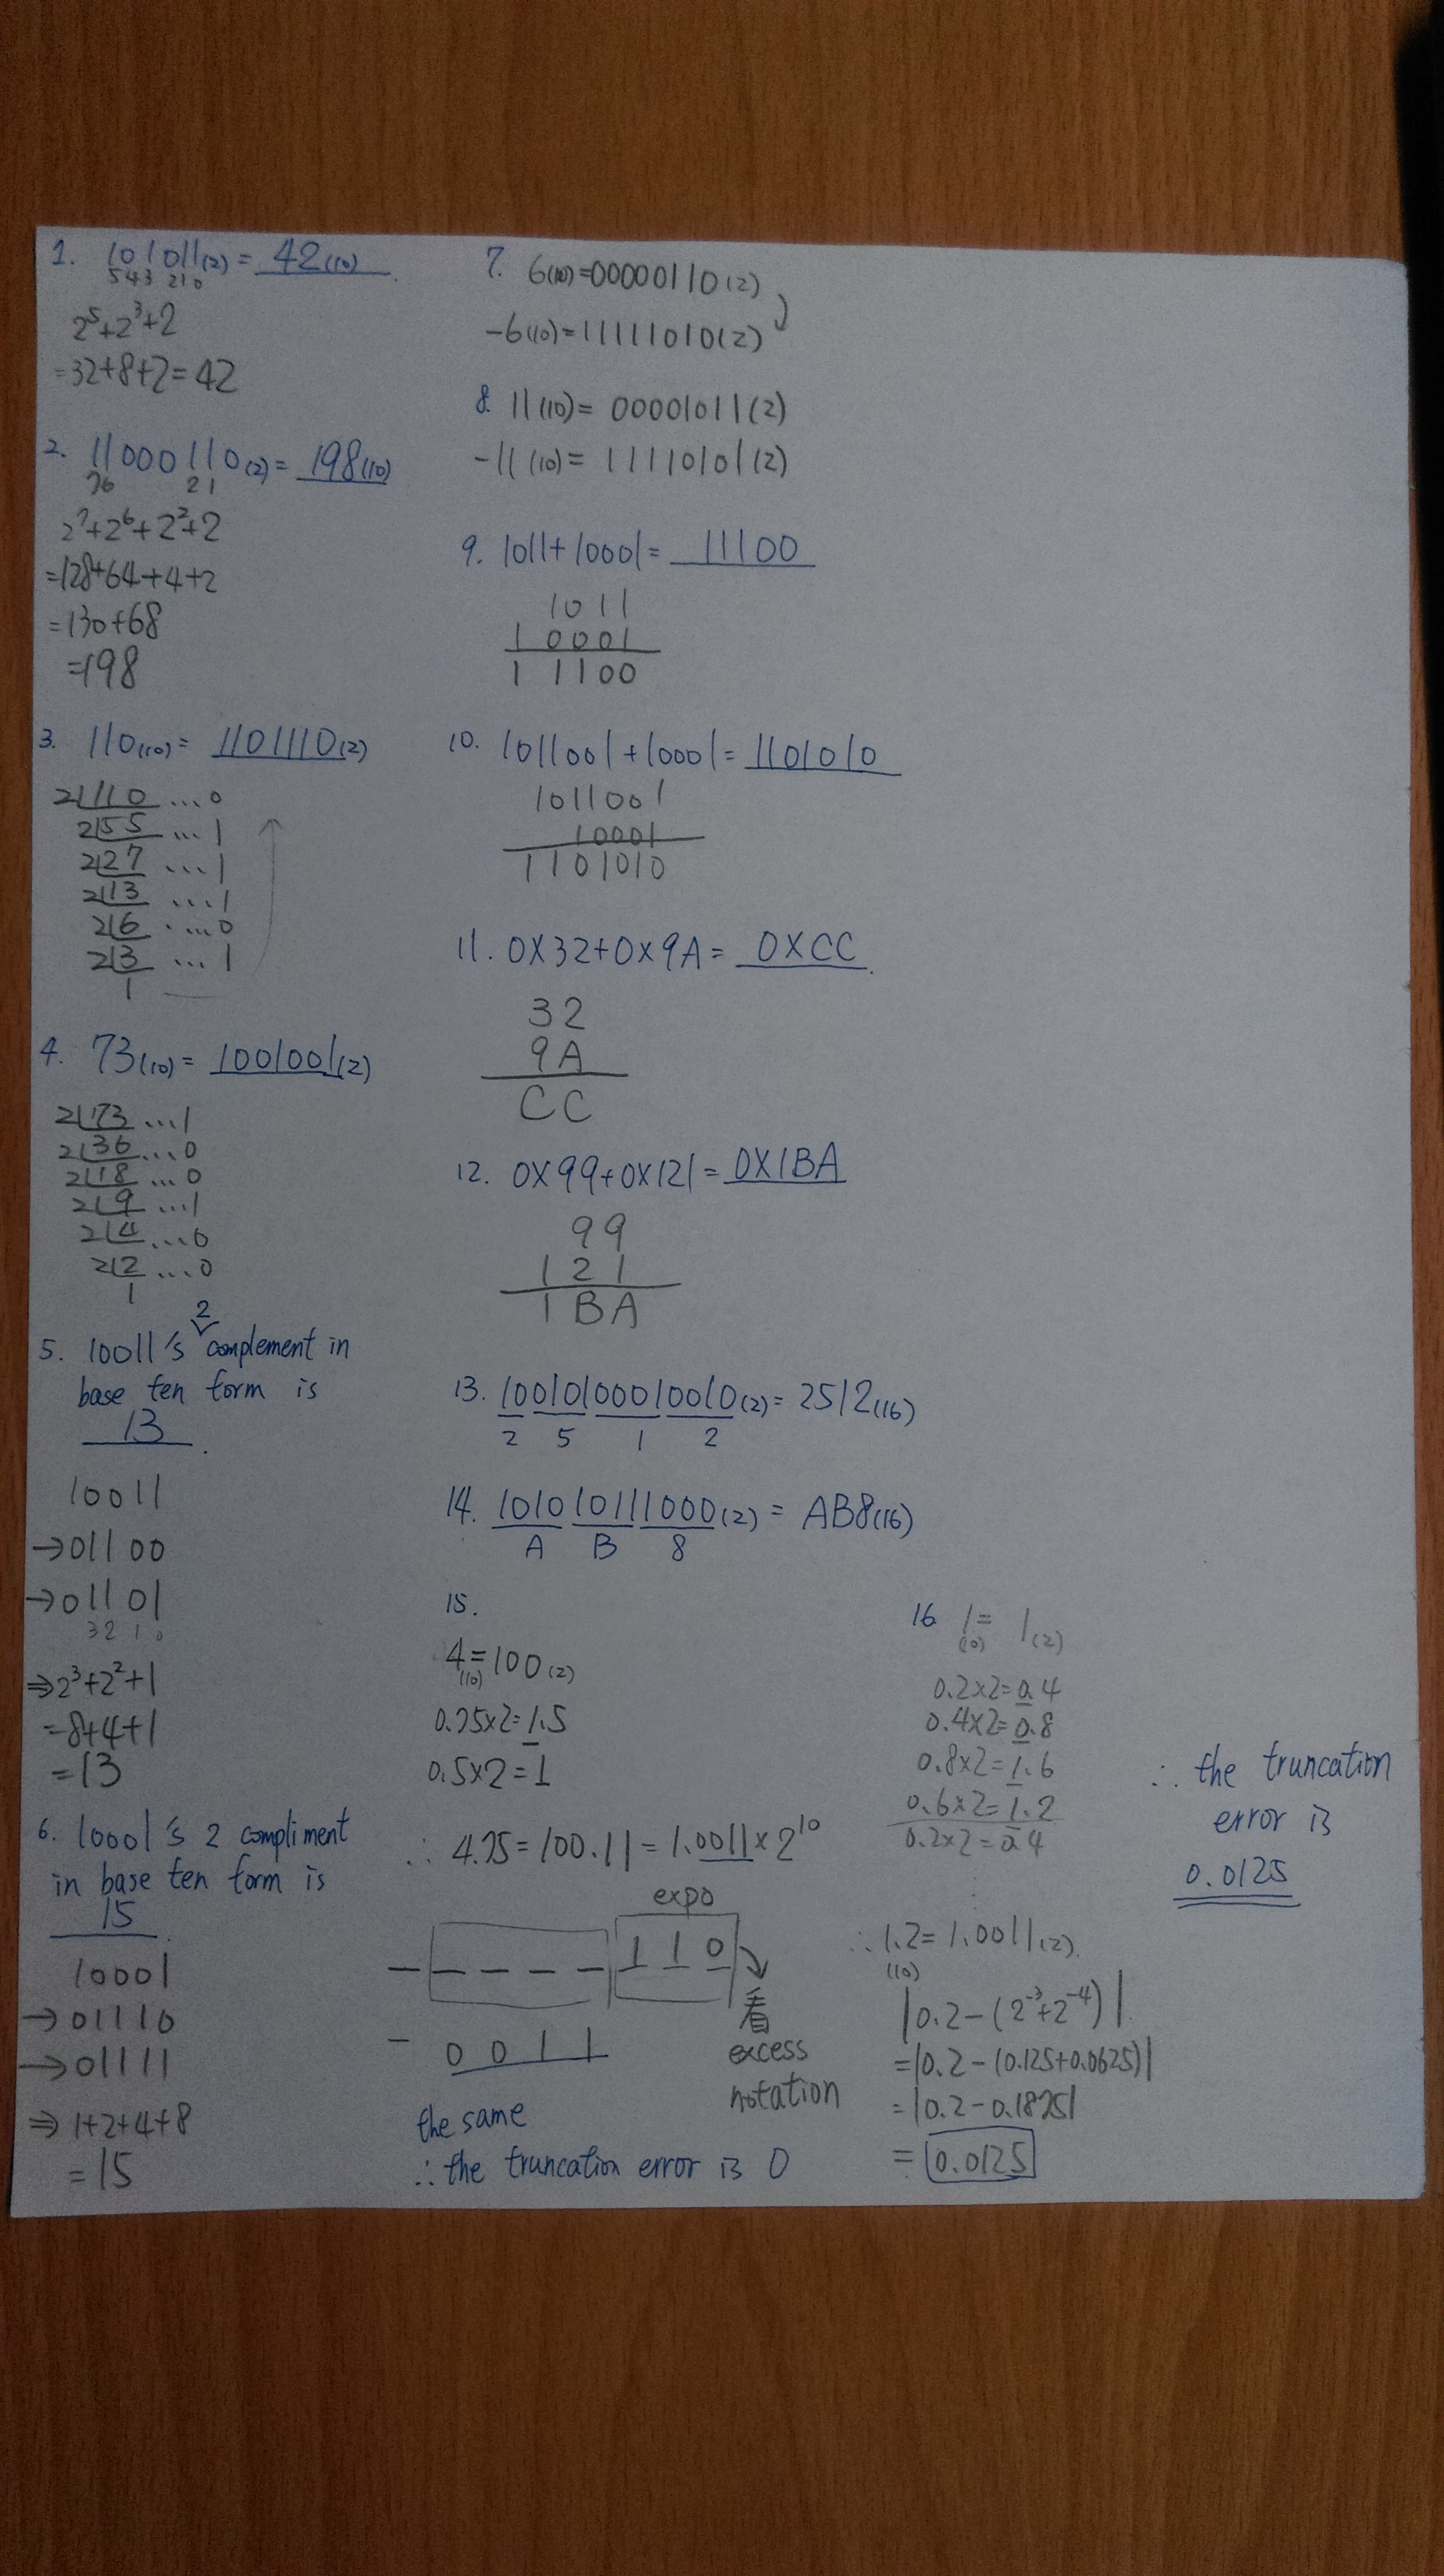 1. 101011(2) = 42(10).
543 210
2⁵+2³+2
=32+8+2=42
2. 11000110(2) = 198(10)
76 21
2⁷+2⁶+2²+2
=128+64+4+2
=130+68
=198
3. 110(10) = 1101110(2)
2|110 ...0
2|55 ...1
2|27 ...1
2|13 ...1
2|6 ...0
2|3 ...1
1
4. 73(10) = 1001001(2)
2|73 ...1
2|36 ...0
2|18 ...0
2|9 ...1
2|4 ...0
2|2 ...0
1
5. 10011's 2 complement in
base ten form is
13.
10011
→01100
→01101
3210
⇒2³+2²+1
=8+4+1
=13
6. 10001's 2 compliment
in base ten form is
15.
10001
→01110
→01111
⇒1+2+4+8
=15
7. 6(10)=00000110(2)
-6(10)=11111010(2)
8. 11(10)= 00001011(2)
-11(10)= 11110101(2)
9. 1011+10001= 11100
1011
10001
11100
10. 1011001+10001= 1101010
1011001
10001
1101010
11. 0X32+0X9A= 0XCC.
32
9A
CC
12. 0X99+0X121= 0X1BA
99
121
1BA
13. 10010100010010(2)= 2512(16)
2 5 1 2
14. 101010111000(2) = AB8(16)
A B 8
15.
4(10)=100(2)
0.75x2=1.5
0.5x2=1
∴ 4.75=100.11=1.0011x2¹⁰
expo
- - - - - 1 1 0
看
excess
notation
- 0 0 1 1
the same
∴the truncation error is 0
16 1(10)= 1(2)
0.2x2=0.4
0.4x2=0.8
0.8x2=1.6
0.6x2=1.2
0.2x2=0.4
∴1.2(10)=1.0011(2)
|0.2-(2⁻³+2⁻⁴)|
=|0.2-(0.125+0.0625)|
=|0.2-0.1875|
=0.0125
∴ the truncation
error is
0.0125